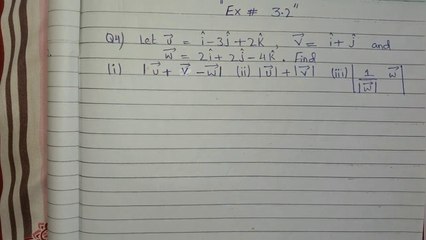 "Ex # 3.2"
Q4) Let u⃗ = î-3ĵ+2k̂, v⃗ = î+ĵ and
w⃗ = 2î+2ĵ-4k̂. Find
(i) |u⃗ + v⃗ - w⃗| (ii) |u⃗| + |v⃗| (iii) |1/|w⃗| w⃗|